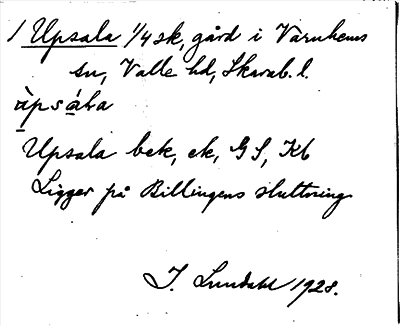 / Upsala 1/4 sk, gård i Varnhems
sn, Valle hd, Skarab. l.
Upsala bek, ek, GS, Kb
Ligger på Billingens sluttning
I. Lundahl 1928.